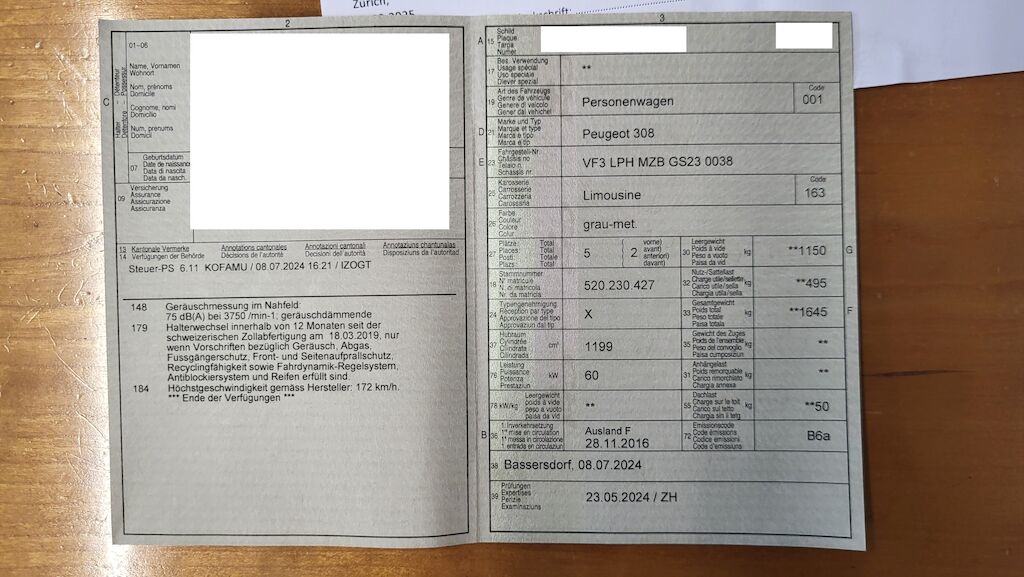 Zürich,
2
01-06
Name, Vornamen
Wohnort
Nom, prénoms
Domicile
Cognome, nomi
Domicilio
Num, prenums
Domicil
C
Halter Détenteur
Detentore Possessur
07
Geburtsdatum
Date de naissance
Data di nascita
Data da nasch.
09
Versicherung
Assurance
Assicurazione
Assicuranza
13
14
Kantonale Vermerke
Verfügungen der Behörde
Annotations cantonales
Décisions de l'autorité
Annotazioni cantonali
Decisioni dell'autorità
Annotaziuns chantunalas
Disposiziuns da l'autoritad
Steuer-PS 6.11 KOFAMU / 08.07.2024 16:21 / IZOGT
148 Geräuschmessung im Nahfeld:
75 dB(A) bei 3750 /min-1; geräuschdämmende
179 Halterwechsel innerhalb von 12 Monaten seit der
schweizerischen Zollabfertigung am 18.03.2019, nur
wenn Vorschriften bezüglich Geräusch, Abgas,
Fussgängerschutz, Front- und Seitenaufprallschutz,
Recyclingfähigkeit sowie Fahrdynamik-Regelsystem,
Antiblockiersystem und Reifen erfüllt sind.
184 Höchstgeschwindigkeit gemäss Hersteller: 172 km/h.
*** Ende der Verfügungen ***
3
A 15
Schild
Plaque
Targa
Numer
17
Bes. Verwendung
Usage spécial
Uso speciale
Diever spezial
**
19
Art des Fahrzeugs
Genre de véhicule
Genere di veicolo
Gener dal vehichel
Personenwagen
Code
001
D 21
Marke und Typ
Marque et type
Marca e tipo
Marca e tip
Peugeot 308
E 23
Fahrgestell-Nr.
Châssis no
Telaio n.
Schassis nr.
VF3 LPH MZB GS23 0038
25
Karosserie
Carrosserie
Carrozzeria
Carossaria
Limousine
Code
163
26
Farbe
Couleur
Colore
Colur
grau-met.
27
Plätze: Total
Places: Total
Posti: Totale
Plazs: Total
5
2
vorne)
avant)
anteriori)
davant)
30
Leergewicht
Poids à vide
Peso a vuoto
Paisa da vid
kg
**1150
G
18
Stammnummer
N° matricule
N. di matricola
Nr. da matricla
520.230.427
32
Nutz-/Sattellast
Charge utile/sellette
Carico utile/sella
Chargia utila/sella
kg
**495
24
Typengenehmigung
Réception par type
Approvazione del tipo
Approvaziun dal tip
X
33
Gesamtgewicht
Poids total
Peso totale
Paisa totala
kg
**1645
F
37
Hubraum
Cylindrée
Cilindrata
Cilindrada
cm³
1199
35
Gewicht des Zuges
Poids de l'ensemble
Peso del convoglio
Paisa cumposiziun
kg
**
76
Leistung
Puissance
Potenza
Prestaziun
kW
60
31
Anhängelast
Poids remorquable
Carico rimorchiato
Chargia annexa
kg
**
78 kW/kg
Leergewicht
poids à vide
peso a vuoto
paisa da vid
**
55
Dachlast
Charge sur le toit
Carico sul tetto
Chargia sin il tetg
kg
**50
B 36
1. Inverkehrsetzung
1re mise en circulation
1a messa in circolazione
1 entrada en circulaziun
Ausland F
28.11.2016
72
Emissionscode
Code émissions
Codice emissioni
Code d'emissiuns
B6a
38
Bassersdorf, 08.07.2024
39
Prüfungen
Expertises
Perizie
Examinaziuns
23.05.2024 / ZH